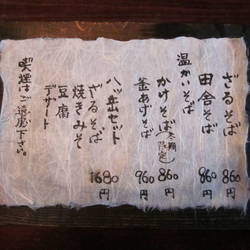 ざるそば 860円
田舎そば 960円
温かいそば
かけそば(冬期限定) 860円
釜あげそば 960円
八ヶ岳セット 1680円
ざるそば
焼きみそ
豆腐
デザート
喫煙はご遠慮下さい。